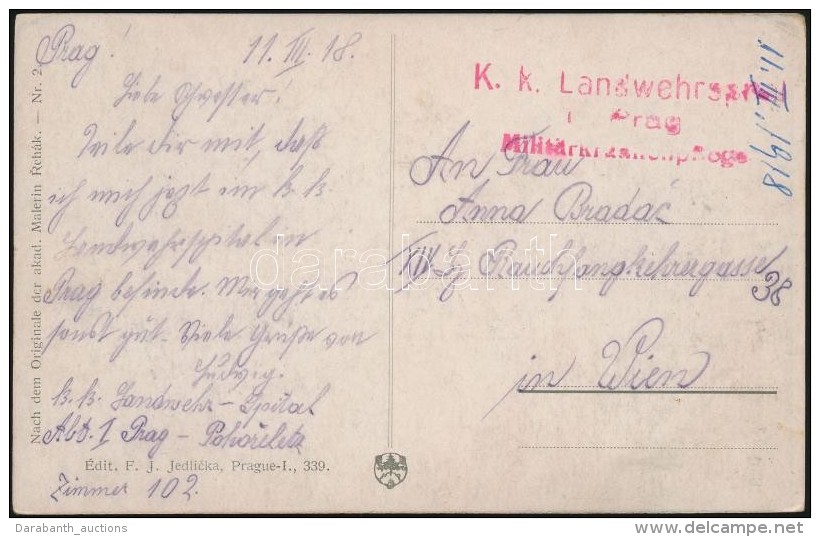 Prag! 11. III. 18.
Liebe Schwester!
Teile dir mit, daß
ich mich jezt im k. k.
Landwehrspital in
Prag befinde. Mir geht es
sonst gut. Viele Grüße von
Ludwig.
K. k. Landwehr-Spital
Abt. I Prag - Pohořeletz
Zimmer 102.
Nach dem Originale der akad. Malerin Řehák. — Nr. 2.
Édit. F. J. Jedlička, Prague-I., 339.
K. k. Landwehrspital
Prag
Militärkrankenpflege
11. III. 1918
An Frau
Anna Bradáč
XIV. Rauchfangkehrergasse
38
in Wien
darabanth
Darabanth_auctions
delcampe.net